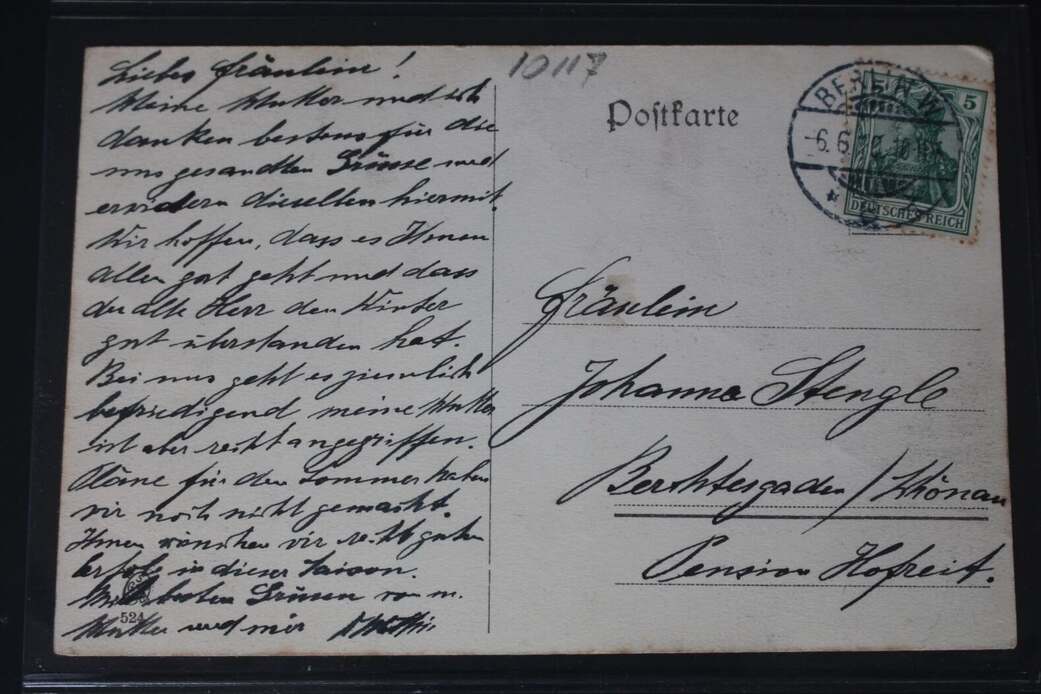 Liebes Fräulein!
Meine Mutter und ich
danken bestens für die
uns gesandten Grüsse und
erwidern dieselben hiermit.
Wir hoffen, dass es Ihnen
allen gut geht und dass
der alte Herr den Winter
gut überstanden hat.
Bei uns geht es ziemlich
befriedigend meine Mutter
ist aber recht angegriffen.
Pläne für den Sommer haben
wir noch nicht gemacht.
Ihnen wünschen wir recht guten
Erfolg in dieser Saison.
Mit besten Grüssen von m.
Mutter und mir
524
10117
Postkarte
BERLIN W.
-6.6.
5
DEUTSCHES REICH
Fräulein
Johanna Stengle
Berchtesgaden / Schönau
Pension Hofreit.